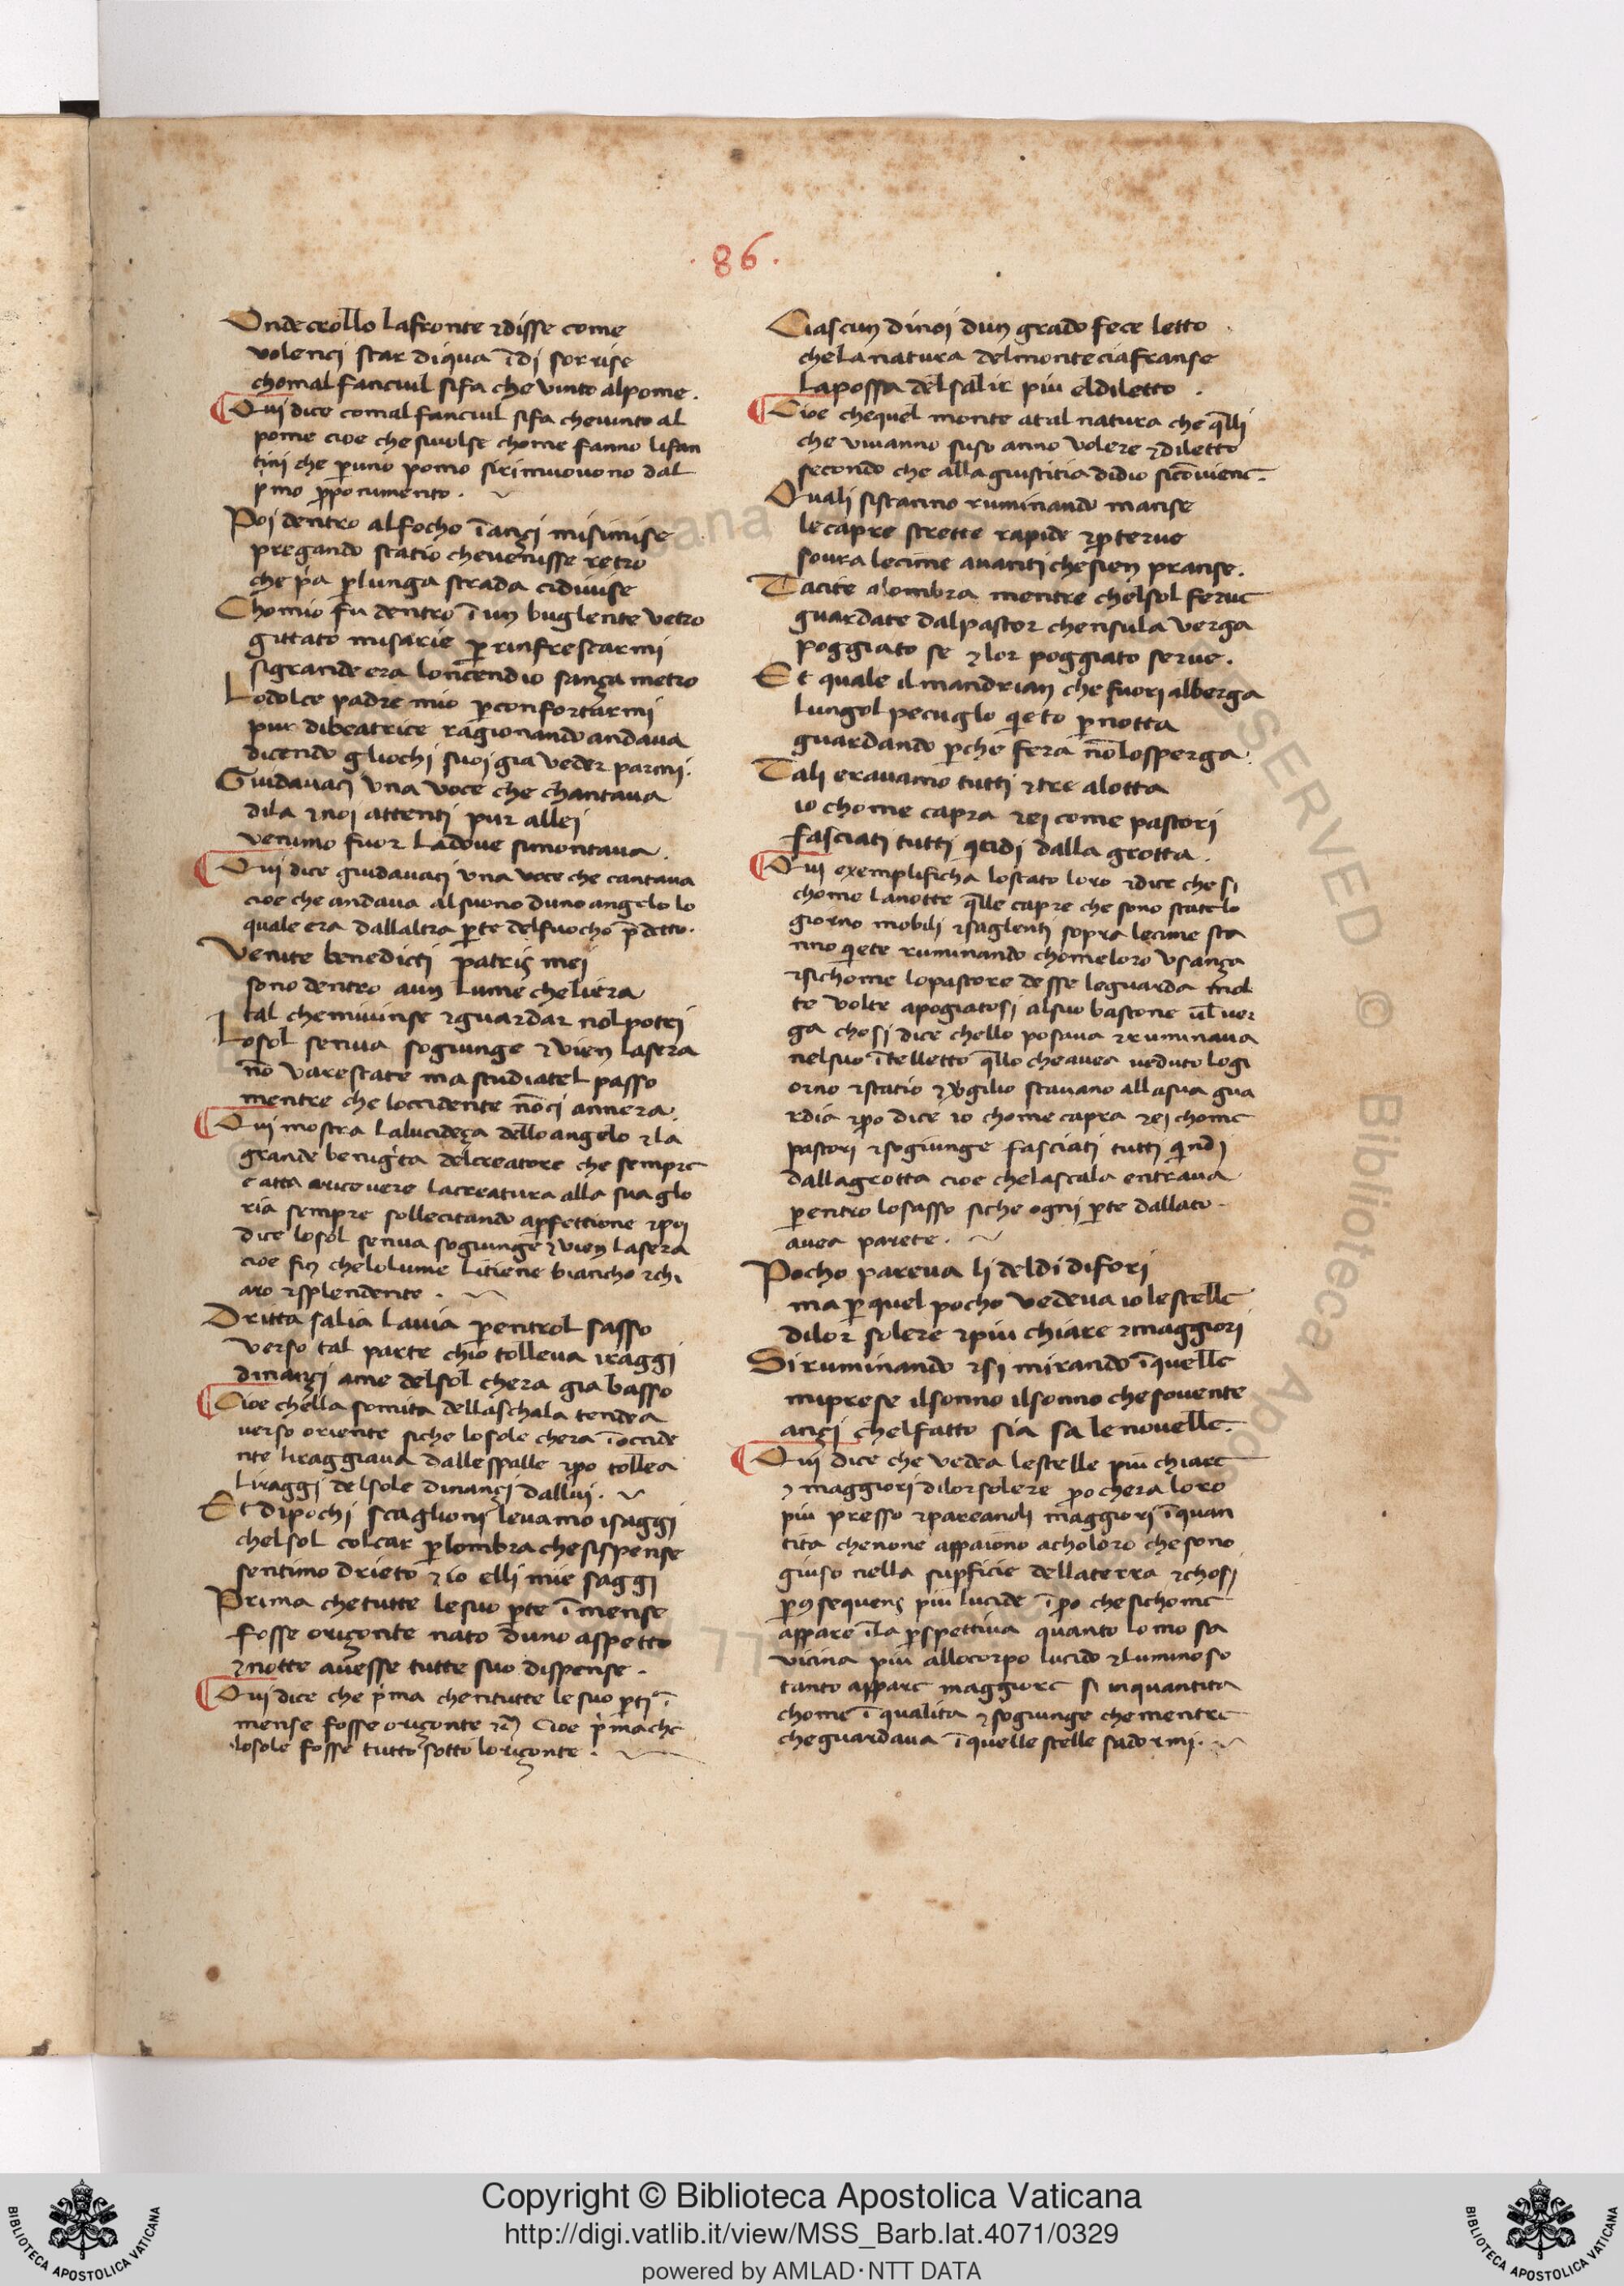 · 86 ·
Onde crollo lafronte ⁊disse come
volenci star diqua ĩdi sorrise
chomal fanciul sifa che vinto alpome .
Qui dice comal fanciul sifa chevinto al
pome cioe che sivolse chome fanno lifan
tini che ꝑuno pomo sirimuovono dal
pmo ꝓponimento .
Poi dentro alfocho ĩançi misimise
pregando statio chevenisse retro
che pͥa ꝑlunga strada cidivise
Chomio fu dentro ĩ un buglente vetro
gittato misarie ꝑ rinfrescarmi
sigrande era loncendio sança metro
Lodolce padre mio ꝑconfortarmi
pur dibeatrice ragionando andava
dicendo gliochi suoi gia veder parmi .
Guidavaci una voce che chantava
dila ⁊noi attenti pur allei
venimo fuor ladove simontava .
Qui dice guidavaci una voce che cantava
cioe che andava alsuono duno angelo lo
quale era dallaltra ꝑte delfuocho p̃detto .
Venite benedicti patris mei
sono dentro aun lume cheliera
tal chemivinse ⁊guardar nolpotei
Losol senva sogiunge ⁊ vien lasera
nõ varestate ma studiatel passo
mentre che loccidente nõci annera
Qui mostra lalucideça dello angelo ⁊la
grande benigͥta delcreatore che sempre
e atta aricevere lacreatura alla sua glo
ria sempre sollecitando aꝑfettione ⁊poi
dice losol senva sogiunge ⁊vien lasera
cioe fin chelolume litiene biancho ⁊chi
aro ⁊splendente .
Dritta salia lavia ꝑentrol sasso
verso tal parte chio tolleva iraggi
dinançi ame delsol chera gia basso
Cioe chella somita dellaschala tendea
verso oriente siche losole chera ĩoccide
nte liraggiava dallespalle ⁊ꝑo tollea
liraggi delsole dinançi dallui .
Et dipochi scaglioni levamo isaggi
chelsol colcar ꝑlombra chesispense
sentimo drieto ⁊ io elli mie saggi
Prima chetutte lesuo ꝑte ĩmense
fosse oriçonte nato duno aspetto
⁊notte avesse tutte suo dispense .
Qui dice che pͥma chentutte lesuo ꝑti ĩ
mense fosse oriçonte ⁊c̃ Cioe pͥmache
losole fosse tutto sotto loriçonte .
Ciascun dinoi dun grado fece letto
chelanatura delmonteciafranse
lapossa delsalir piu eldiletto .
Cioe chequel monte atal natura che q̃lli
che vivanno suso anno volere ⁊diletto
secondo che allagiustitia didio sicõviene .
Quali sistanno ruminando manse
lecapre strette rapide ⁊ꝓterve
sovra lecime avanti chesien pranse .
Tacite alombra mentre chelsol ferve
guardate dalpastor chensula verga
poggiato se ⁊ lor poggiato serve .
Et quale il mandrian che fuori alberga
lungol pecuglo qͥeto ꝑnotta
guardando ꝑche fera nõlosperga .
Tali eravamo tutti ⁊tre alotta
io chome capra ⁊ei come pastori
fasciati tutti qͥcidi dalla grotta .
Qui exemplificha lostato loro ⁊dice che si
chome lanotte q̃lle capre che sono state lo
giorno mobili ⁊saglenti sopra lecime sta
nno qͥete ruminando chomeloro usança
⁊sichome lopastore desse leguarda mol
te volte apogiatosi alsuo bastone ul̃ ver
ga chosi dice chello posava ⁊ruminava
nelsuo ĩtelletto q̃llo cheavea veduto logi
orno ⁊statio ⁊v̓gilio stavano allasua gua
rdia ⁊ꝑo dice io chome capra ⁊ei chome
pastori ⁊sogiunge fasciati tutti qͥndi
dallagrotta cioe chelascala entrava
ꝑentro losasso siche ogni ꝑte dallato .
avea parete .
Pocho pareva li deldi difori
ma ꝑ quel pocho vedeva io lestelle
dilor solere ⁊piu chiare ⁊maggiori
Si ruminando ⁊si mirando ĩquelle
miprese ilsonno ilsonno chesovente
ançi chelfatto sia sa lenovelle .
Qui dice che vedea lestelle piu chiare
⁊ maggiori dilorsolere ꝑo chera loro
piu presso ⁊pareanoli maggiori ĩquan
tita chenone appaiono acholoro chesono
giuso nella suꝑficie dellaterra ⁊chosi
ꝑꝯsequens piu lucide ĩꝑo chesichome
appare ĩla ꝑspettiva quanto lomo sa
vicina piu allocorpo lucido ⁊luminoso
tanto appare maggiore si inquantita
chome ĩ qualita ⁊sogiunge chementre
cheguardava ĩquelle stelle sadormi .
Copyright © Biblioteca Apostolica Vaticana
http://digi.vatlib.it/view/MSS_Barb.lat.4071/0329
powered by AMLAD·NTT DATA
BIBLIOTECA APOSTOLICA VATICANA
BIBLIOTECA APOSTOLICA VATICANA